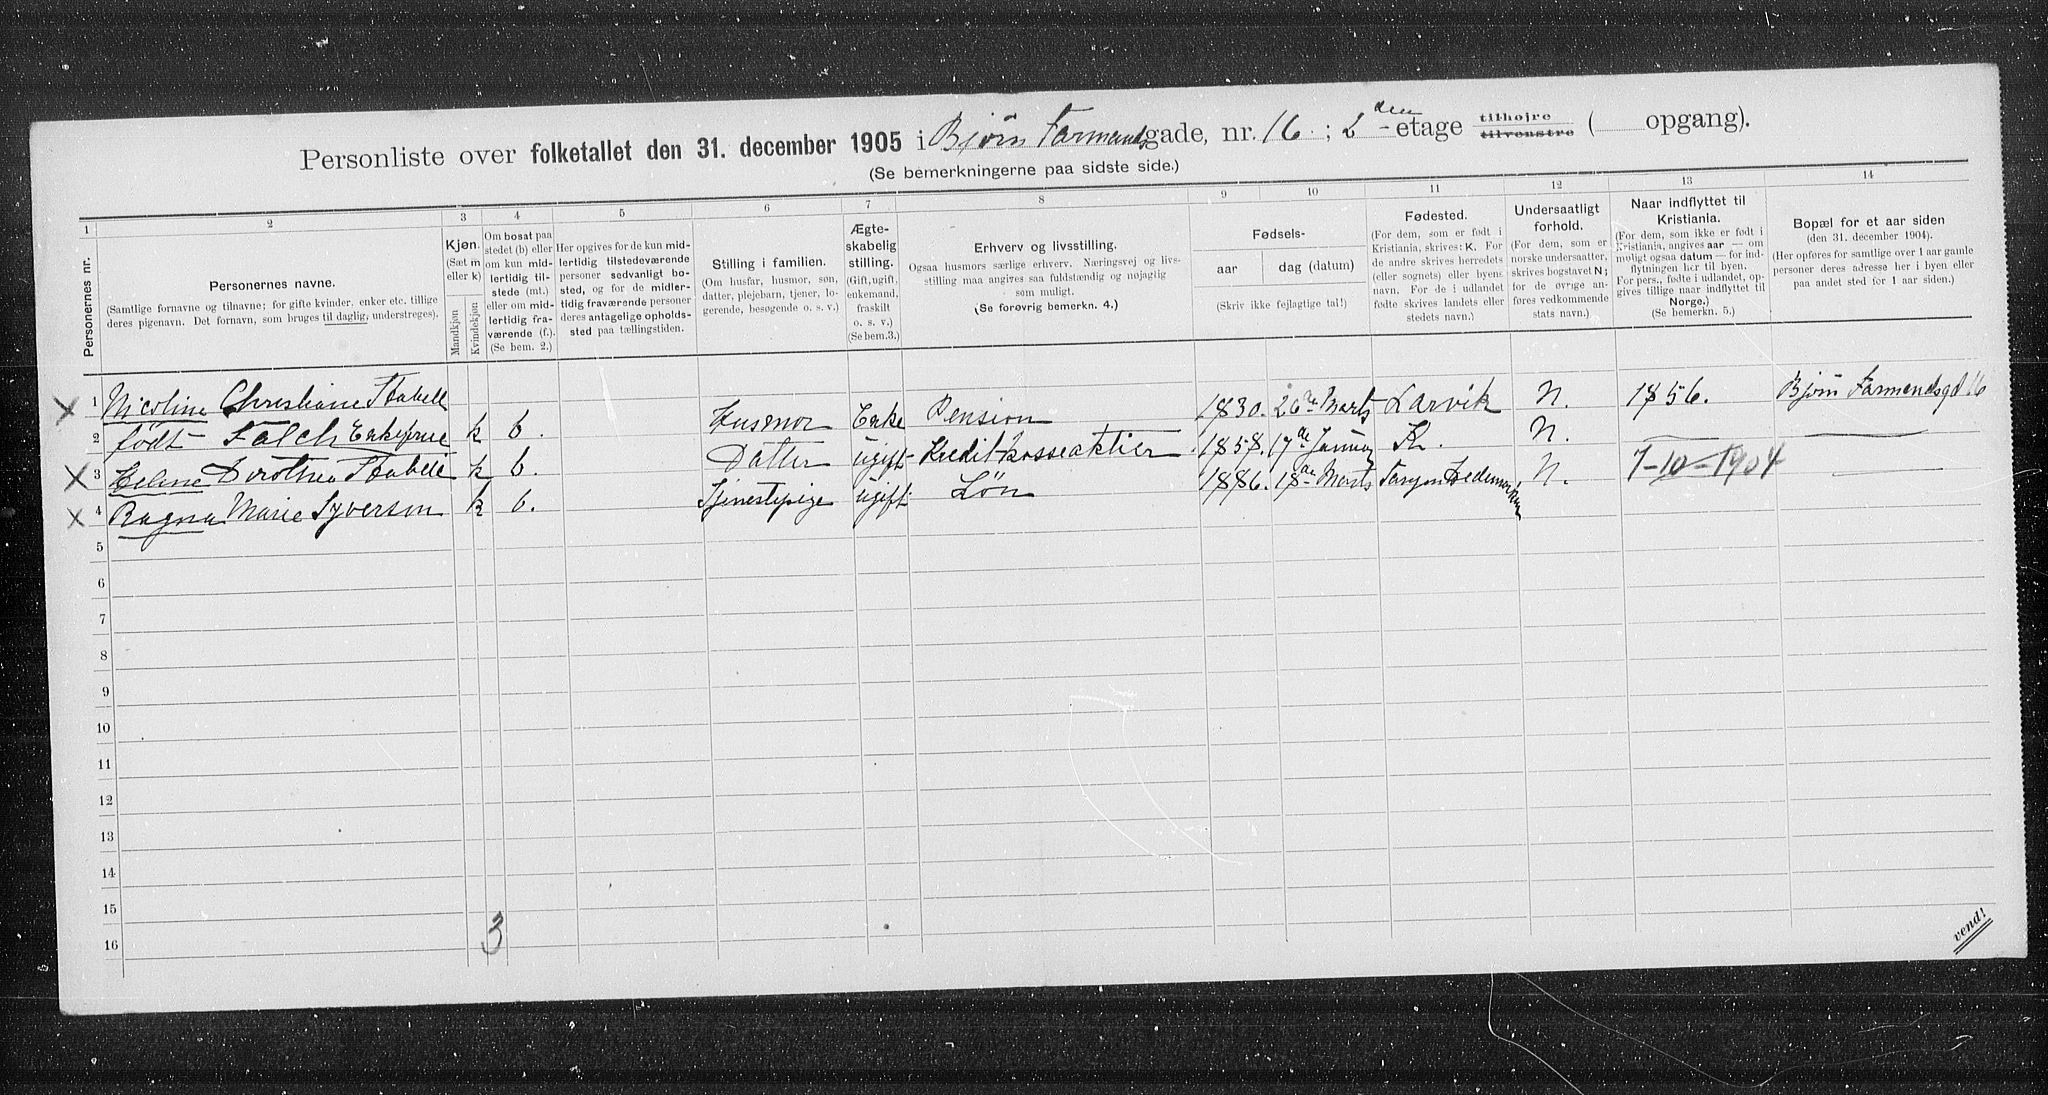 Personliste over folketallet den 31. december 1905 i Bjørn Farmandsgade, nr. 16.; 2den-etage tilhøjre tilvenstre ( opgang).
(Se bemerkningerne paa sidste side.)
1 2 3 4 5 6 7 8 9 10 11 12 13 14
Personernes nr.
Personernes navne.
(Samtlige fornavne og tilnavne; for gifte kvinder, enker etc. tillige
deres pigenavn. Det fornavn, som bruges til daglig, understreges).
Kjøn.
(Sæt m
eller k)
Mandkjøn
Kvindekjøn
Om bosat paa
stedet (b) eller
om kun mid-
lertidig til-
stede (mt.)
eller om mid-
lertidig fra-
værende (f.).
(Se bem. 2.)
Her opgives for de kun mid-
lertidig tilstedeværende
personer sedvanligt bo-
sted, og for de midler-
tidig fraværende personer
deres antagelige opholds-
sted paa tællingstiden.
Stilling i familien.
(Om husfar, husmor, søn,
datter, plejebarn, tjener, lo-
gerende, besøgende o. s. v.)
Ægte-
skabelig
stilling.
(Gift, ugift,
enkemand,
fraskilt
o. s. v.)
(Se bem.3.)
Erhverv og livsstilling.
Ogsaa husmors særlige erhverv. Næringsvej og livs-
stilling maa angives saa fuldstændig og nøjagtig
som muligt.
(Se forøvrig bemerkn. 4.)
Fødsels-
aar
dag (datum)
(Skriv ikke fejlagtige tal!)
Fødested.
(For dem, som er født i
Kristiania, skrives: K. For
de andre skrives herredets
(eller sognets) eller byens
navn. For de i udlandet
fødte skrives landets eller
stedets navn.)
Undersaatligt
forhold.
(For dem, som er
norske undersaatter,
skrives bogstavet N;
for de øvrige an-
føres vedkommende
stats navn.)
Naar indflyttet til
Kristiania.
(For dem, som ikke er født i
Kristiania, angives aar — om
muligt ogsaa datum — for ind-
flytningen her til byen.
For pers., fødte i udlandet, op-
gives tillige naar indflyttet til
Norge.)
(Se bemerkn. 5.)
Bopæl for et aar siden
(den 31. december 1904).
(Her opføres for samtlige over 1 aar gamle
personer deres adresse her i byen eller
paa andet sted for 1 aar siden.)
X 1 Nicoline Christiane Stabell
2 født Falch Enkefrue k b. Husmor Enke Pension 1830. 26de Marts Larvik N. 1856. Bjørn Farmandsgd 16
X 3 Helene Dorothea Stabell k b. Datter ugift Kreditkasseaktier 1858. 17de Januar K. N.
X 4 Ragna Marie Syverson k b. Tjenestepige ugift Løn 1886. 18de Marts Hedemarken N. 7-10-1904
5
6
7
8
9
10
11
12
13
14
15
16
3
vend!